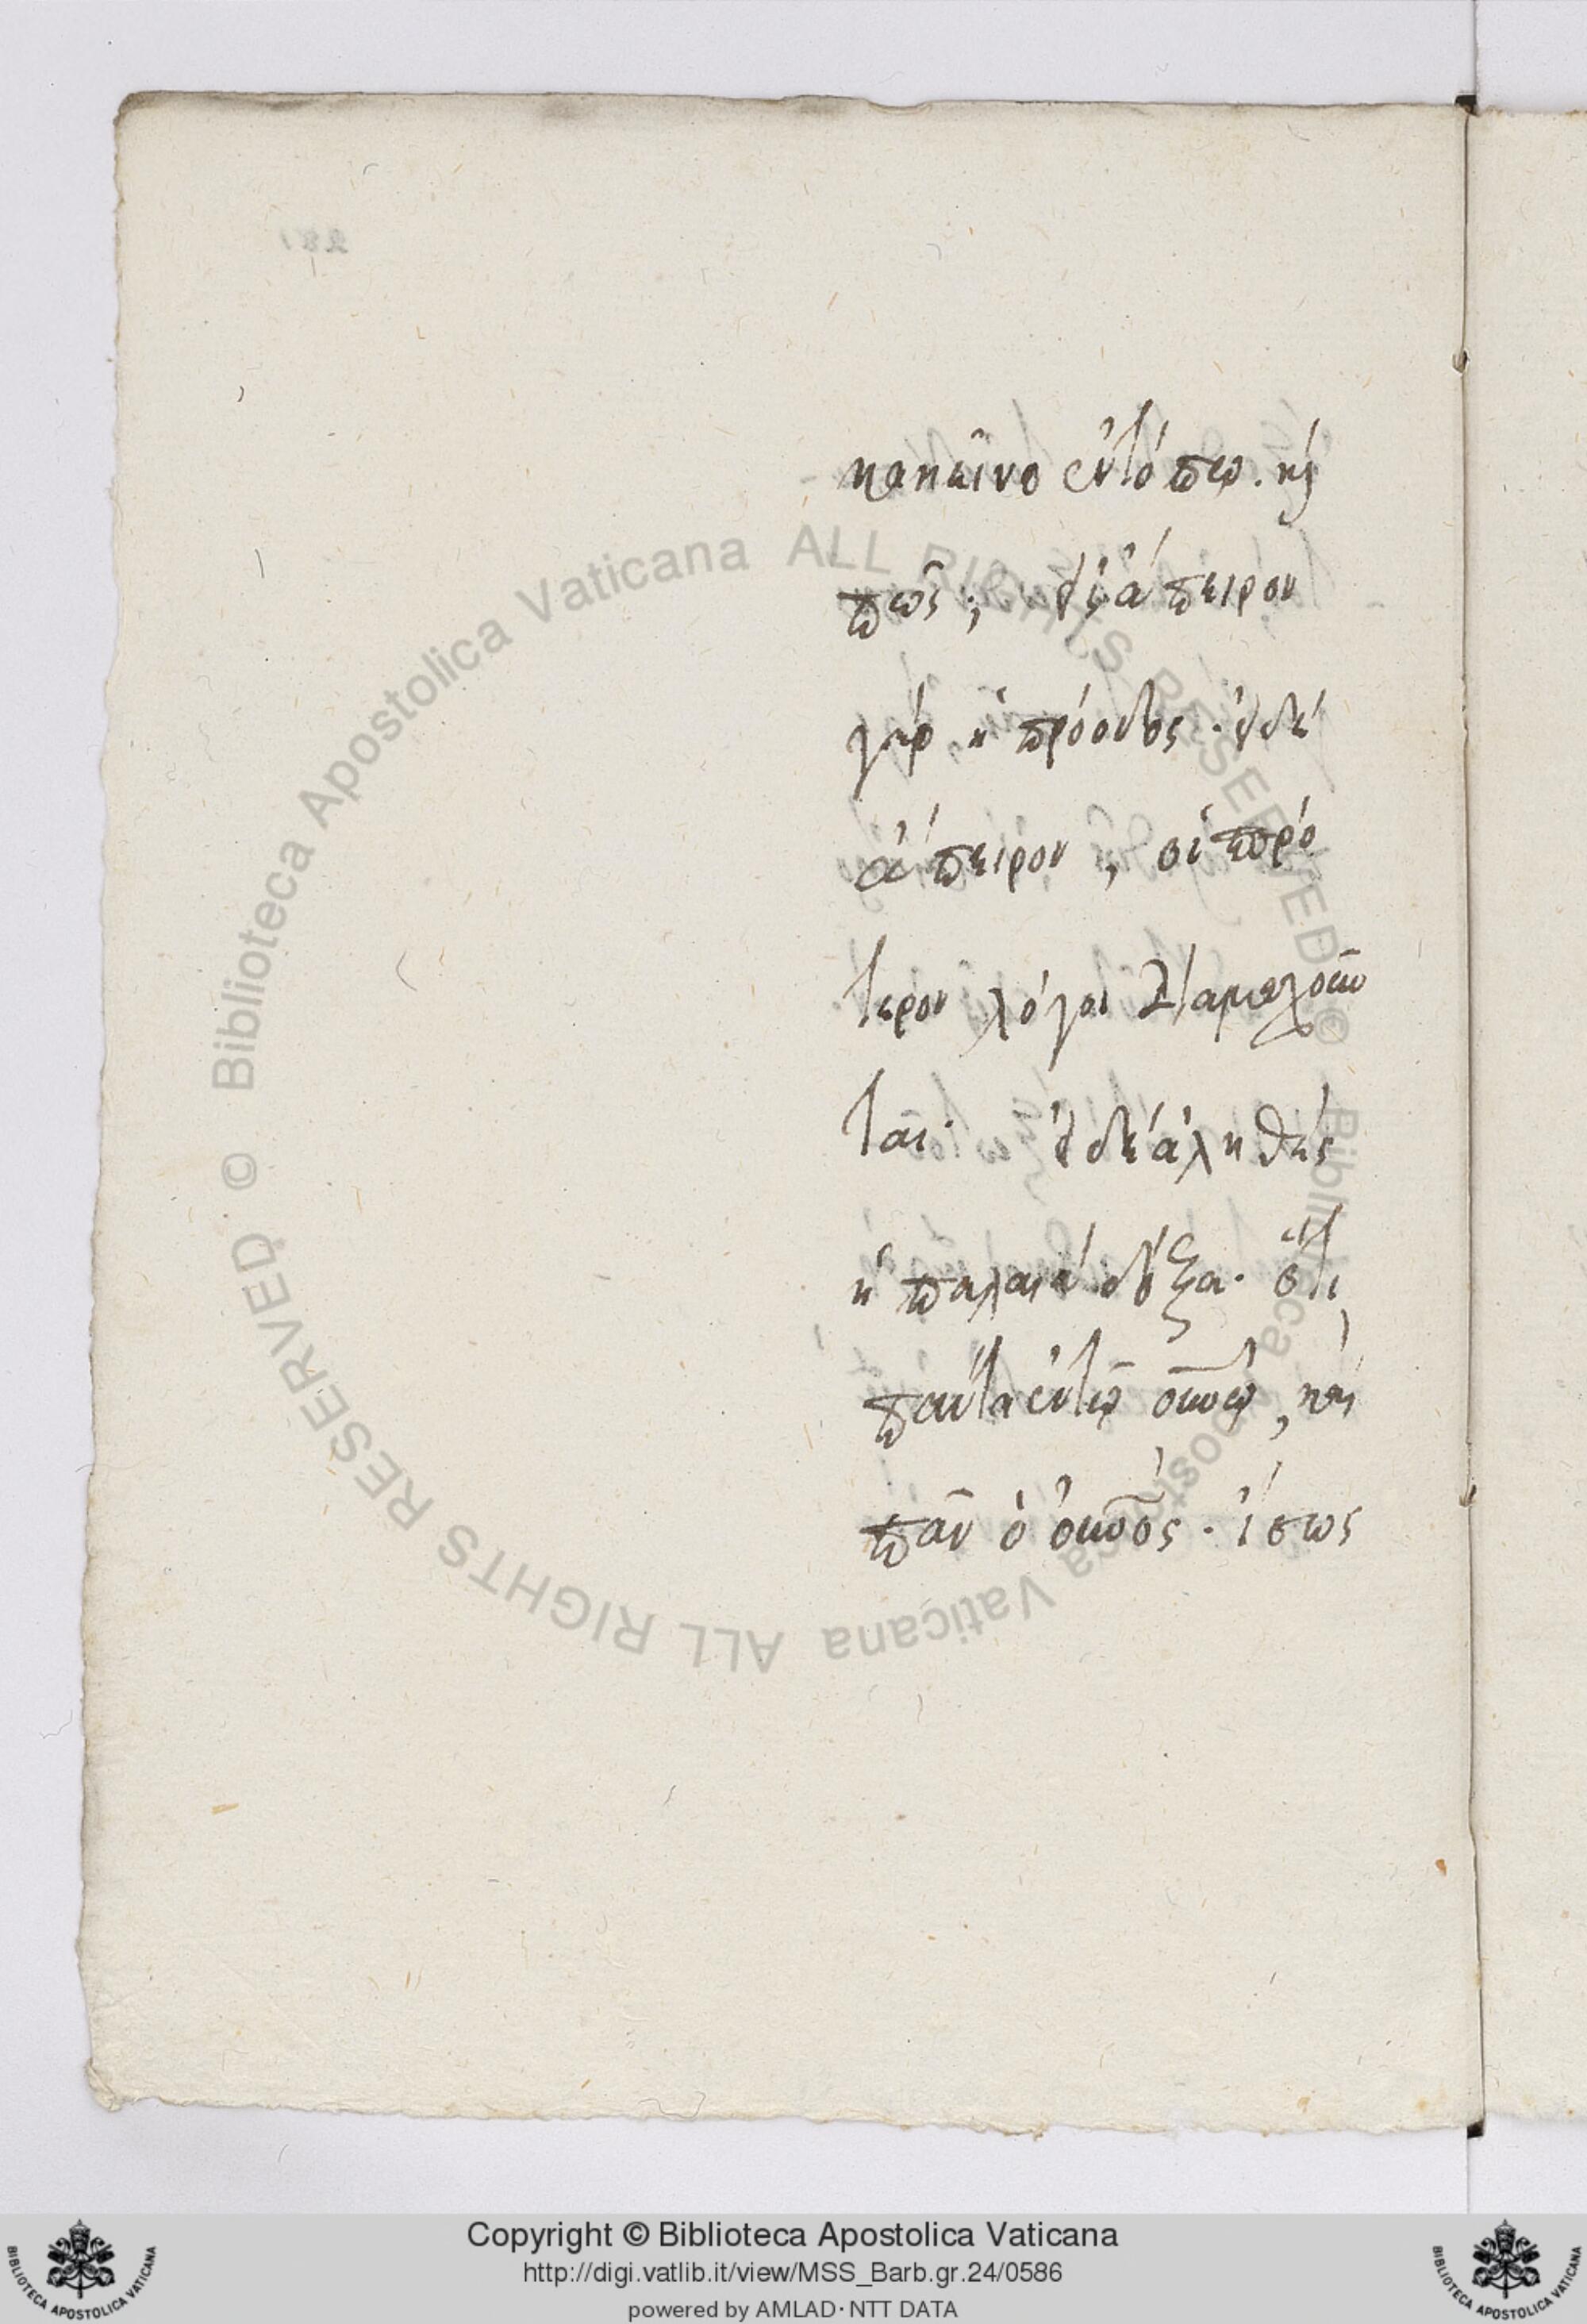 κακεῖνο ἐν τόπῳ. κ
πῶς; ἐς ἄπειρον
γὰρ ἡ πρόοδος. οὐδὲ
ἄπειρον, οἱ πρό
τερον λόγοι διαμαχοῦν
ται. οὐδὲ ἀληθής
ἡ παλαιὰ δόξα. ὅτι
πάντα ἐν τῷ οὐνῷ, καὶ
πᾶν ὁ οὐνός. ἴσως
© Biblioteca Apostolica Vaticana ALL RIGHTS RESERVED © Biblioteca Apostolica Vaticana ALL RIGHTS RESERVED
Copyright © Biblioteca Apostolica Vaticana
http://digi.vatlib.it/view/MSS_Barb.gr.24/0586
powered by AMLAD · NTT DATA
BIBLIOTECA APOSTOLICA VATICANA
BIBLIOTECA APOSTOLICA VATICANA